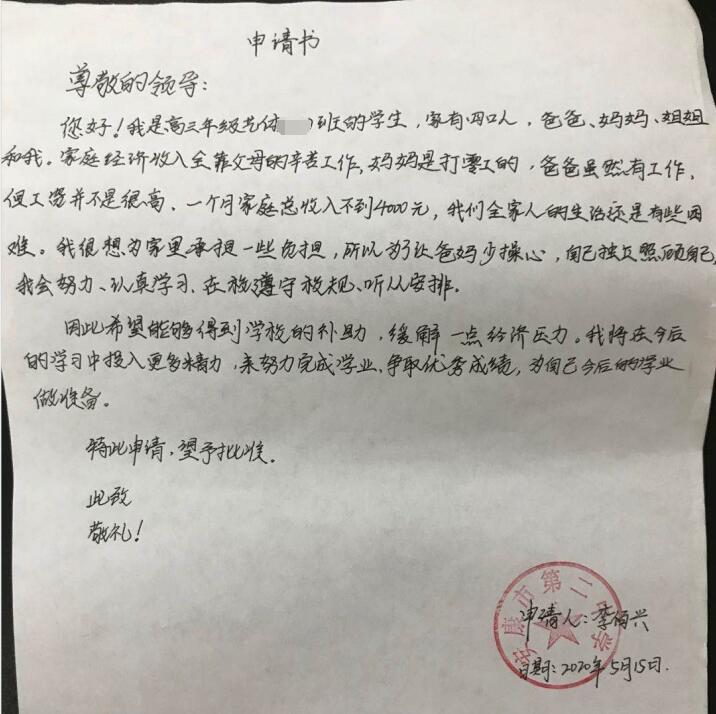 申请书
尊敬的领导：
您好！我是高三年级艺体班的学生，家有四口人，爸爸、妈妈、姐姐
和我。家庭经济收入全靠父母的辛苦工作，妈妈是打零工的，爸爸虽然有工作，
但工资并不是很高，一个月家庭总收入不到4000元，我们全家人的生活还是有些困
难。我很想为家里承担一些负担，所以为了让爸妈少操心，自己独立照顾自己，
我会努力、认真学习、在校遵守校规、听从安排。
因此希望能够得到学校的补助，缓解一点经济压力。我将在今后
的学习中投入更多精力，来努力完成学业、争取优秀成绩，为自己今后的学业
做准备。
特此申请，望予批准。
此致
敬礼！
安康市第二中学
申请人：李佰兴
日期：2020年5月15日.